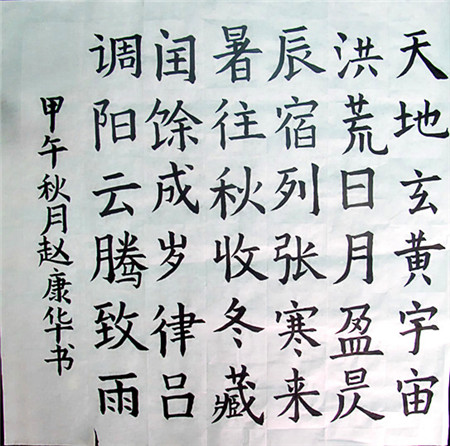 天地玄黄宇宙
洪荒日月盈昃
辰宿列张寒来
暑往秋收冬藏
闰馀成岁律吕
调阳云腾致雨
甲午秋月赵康华书